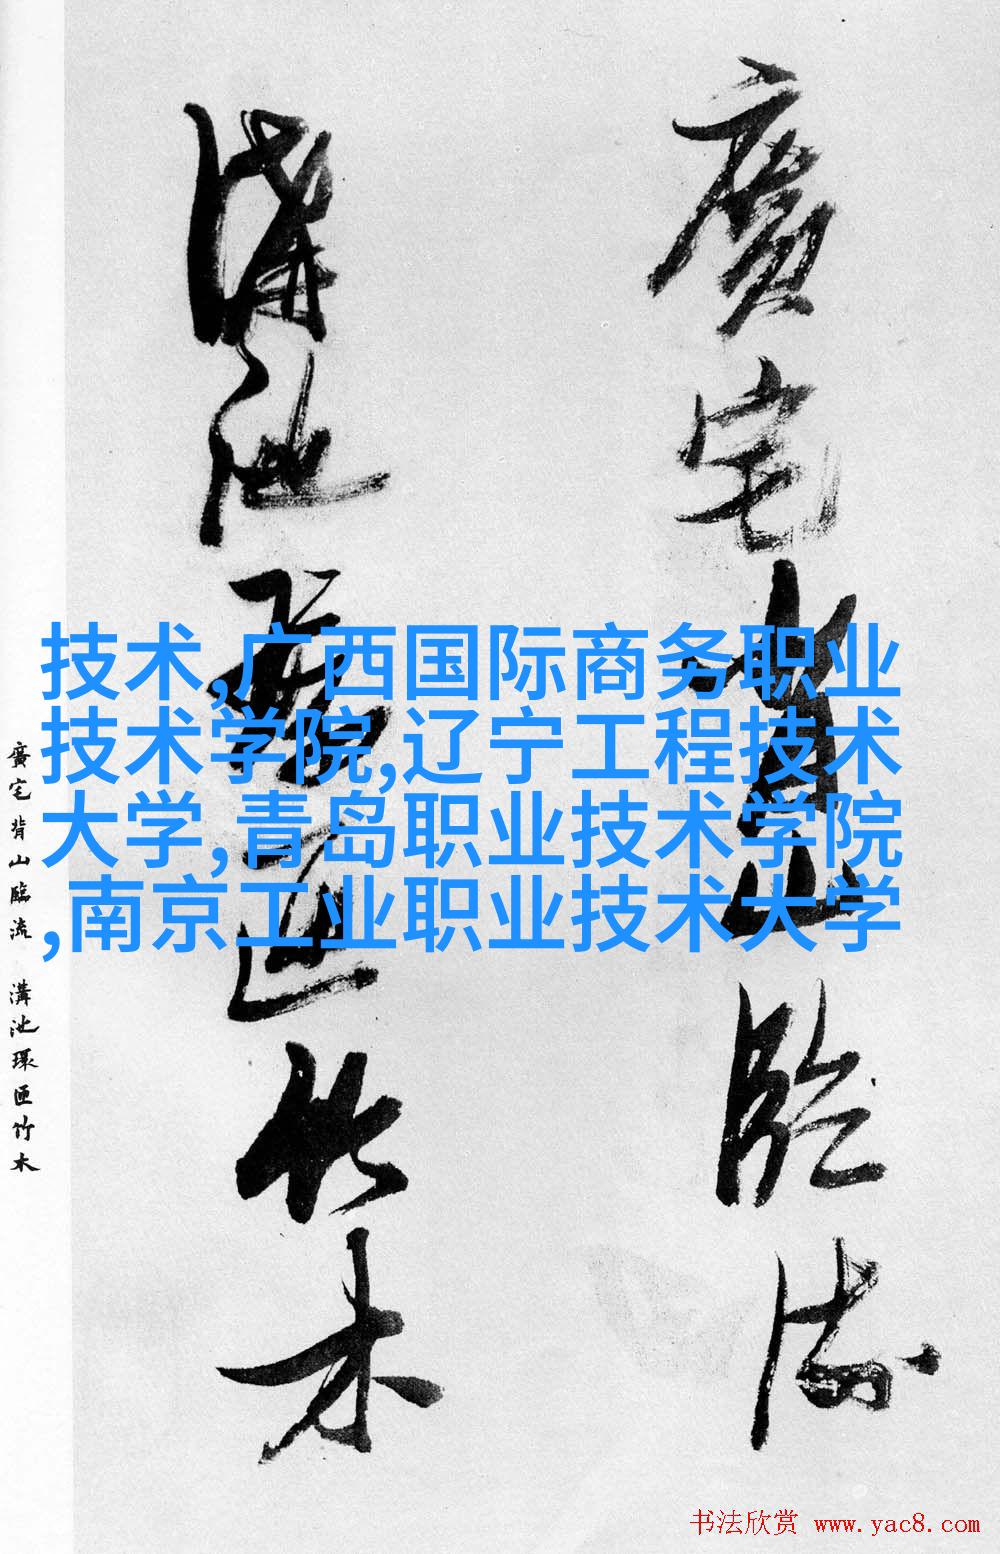 廣宅背山臨流
溝池環匝竹木
技术,广西国际商务职业
技术学院,辽宁工程技术
大学,青岛职业技术学院
,南京工业职业技术大学
廣宅背山臨流 溝池環匝竹木
书法欣赏 www.yac8.com